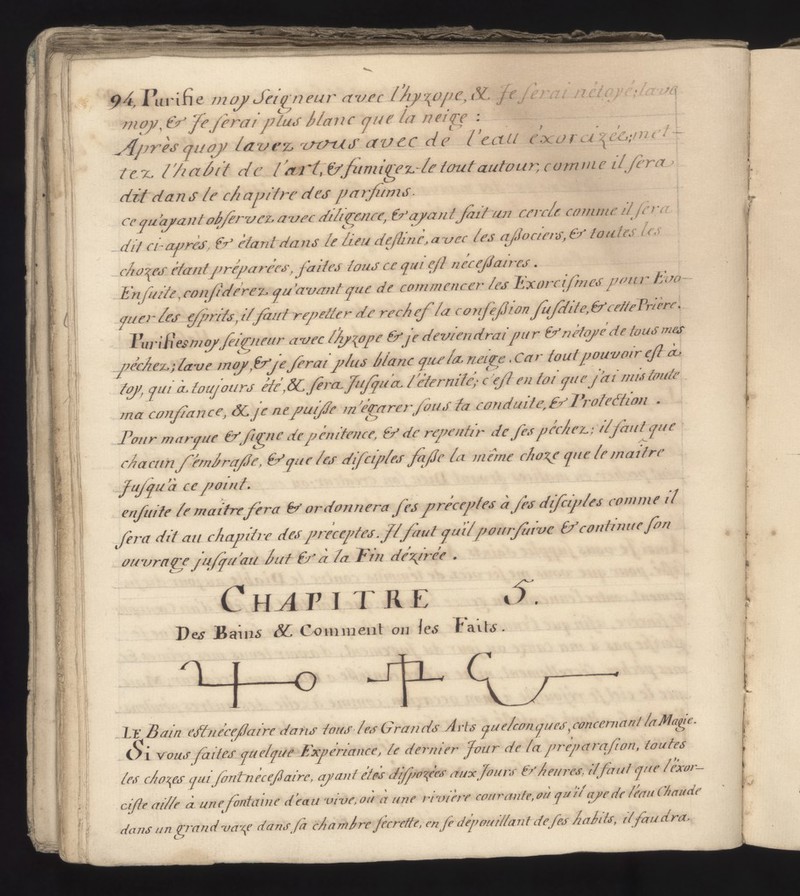 94, Purifie moy Seigneur avec l'hyzope, & Je serai nétoyé; lave
moy, & Je serai plus blanc que la neige :
Après quoy lavez vous avec de l'eau éxorcizée; met-
tez l'habit de l'art, & fumigez-le tout autour, comme il sera
dit dans le chapitre des parfums.
ce qu'ayant observez avec diligence, & ayant fait un cercle comme il sera
dit ci-après, & étant dans le lieu destiné, avec les aßociers, & toutes les
chozes étant préparées, faites tous ce qui est néceßaires.
Ensuite, considérez qu'avant que de commencer les Exorcismes pour Evo-
quer les esprits, il faut repetter de rechef la confeßion susdite, & cette Prière.
Purifiesmoy seigneur avec l'hyzope & je deviendrai pur & nétoyé de tous mes
péchez; lave moy, & je serai plus blanc que la neige. Car tout pouvoir est à
toy, qui à toujours été, & sera Jusqu'à l'éternité; c'est en toi que j'ai mis toute
ma confiance, & je ne puiße m'égarer sous ta conduite, & Protection.
Pour marque & signe de pénitence, & de repentir de ses péchez; il faut que
chacun s'embraße, & que les disciples faße la même choze que le maitre
Jusqu'à ce point.
ensuite le maitre fera & ordonnera ses préceptes à ses disciples comme il
sera dit au chapitre des préceptes. Il faut qu'il poursuive & continue son
ouvrage jusqu'au but & à la Fin dézirée.
CHAPITRE 5.
Des Bains & Comment on les Faits.
LE Bain est néceßaire dans tous les Grands Arts quelconques, concernant la Magie.
Si vous faites quelque Expériance, le dernier Jour de la préparasion, toutes
les chozes qui sont néceßaire, ayant étés dispozées aux Jours & heures, il faut que l'éxor-
ciste aille à une fontaine d'eau vive, où à une rivière courante, où qu'il aye de l'eau Chaude
dans un grand vaze dans sa chambre secrette, en se dépouillant de ses habits, il faudra